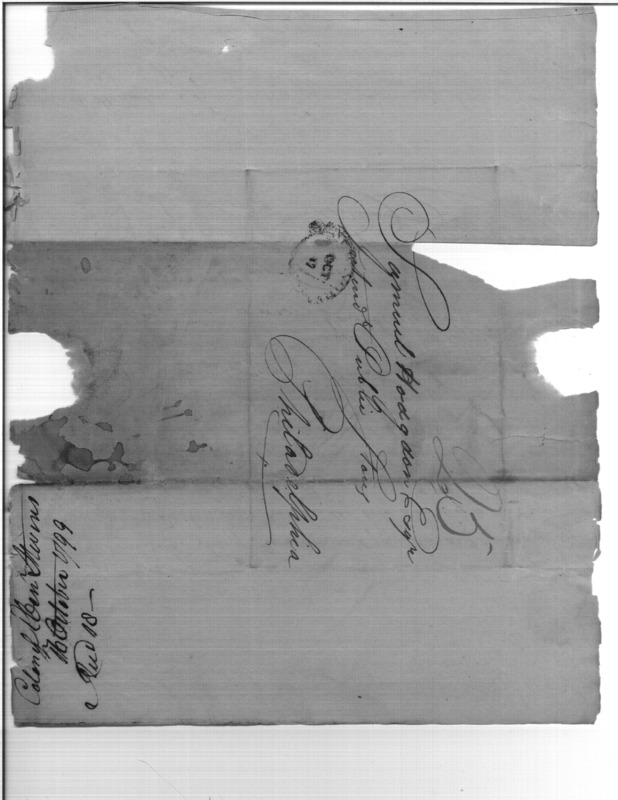 Samuel Hodgdon Esqr
Public Stores
Philadelphia
25
OCT
17
Colonel Eben Stevens
October 1799
Recd 18